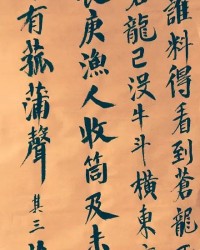 誰料得看到蒼龍
蒼龍已没牛斗橫東
長庚漁人收筒及未
有菰蒲聲 其三